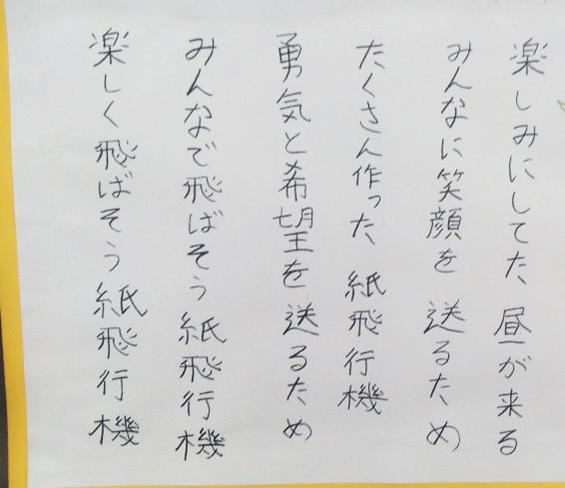 楽しみにしてた、昼が来る
みんなに笑顔を 送るため
たくさん作った、紙飛行機
勇気と希望を 送るため
みんなで飛ばそう 紙飛行機
楽しく飛ばそう 紙飛行機